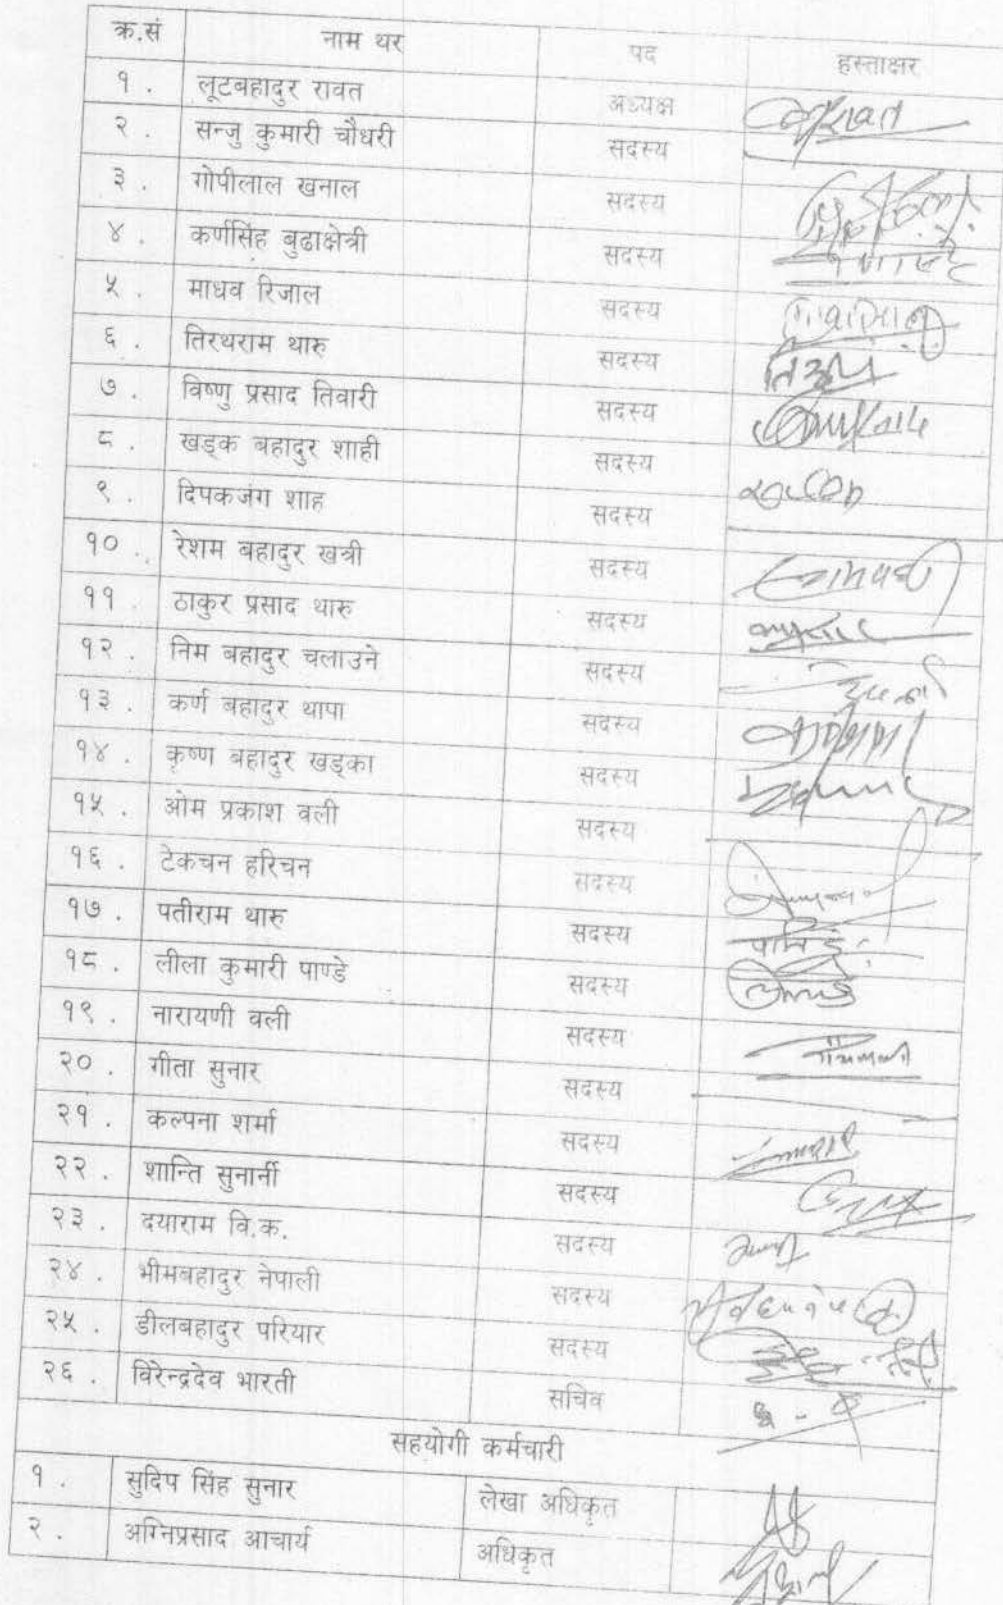 क्र.सं नाम थर पद हस्ताक्षर
१ . लूटबहादुर रावत अध्यक्ष
२ . सन्जु कुमारी चौधरी सदस्य
३ . गोपीलाल खनाल सदस्य
४ . कर्णसिंह बुढाक्षेत्री सदस्य
५ . माधव रिजाल सदस्य
६ . तिरथराम थारु सदस्य
७ . विष्णु प्रसाद तिवारी सदस्य
८ . खड्क बहादुर शाही सदस्य
९ . दिपकजंग शाह सदस्य
१० . रेशम बहादुर खत्री सदस्य
११ . ठाकुर प्रसाद थारु सदस्य
१२ . निम बहादुर चलाउने सदस्य
१३ . कर्ण बहादुर थापा सदस्य
१४ . कृष्ण बहादुर खड्का सदस्य
१५ . ओम प्रकाश वली सदस्य
१६ . टेकचन हरिचन सदस्य
१७ . पतीराम थारु सदस्य
१८ . लीला कुमारी पाण्डे सदस्य
१९ . नारायणी वली सदस्य
२० . गीता सुनार सदस्य
२१ . कल्पना शर्मा सदस्य
२२ . शान्ति सुनार्नी सदस्य
२३ . दयाराम वि.क. सदस्य
२४ . भीमबहादुर नेपाली सदस्य
२५ . डीलबहादुर परियार सदस्य
२६ . विरेन्द्रदेव भारती सचिव
सहयोगी कर्मचारी
१ . सुदिप सिंह सुनार लेखा अधिकृत
२ . अग्निप्रसाद आचार्य अधिकृत